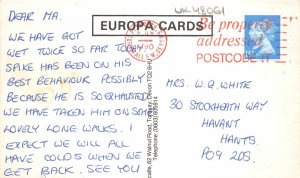 UK48061
EUROPA CARDS
Be properly
addressed
POSTCODE IT
DEAR MA.
WE HAVE GOT
WET TWICE SO FAR TODAY
SPIKE HAS BEEN ON HIS
BEST BEHAVIOUR POSSIBLY
BECAUSE HE IS SO EXHAUSTED
WE HAVE TAKEN HIM ON SOME
LOVELY LONG WALKS. I
EXPECT WE WILL ALL
HAVE COLDS WHEN WE
GET BACK. SEE YOU
62 Walnut Road, Torquay, Devon TQ2 6HS
Telephone: (0803)
MRS. W.Q. WHITE
30 STOCKHEATH WAY
HAVANT
HANTS.
PO9 2DS.